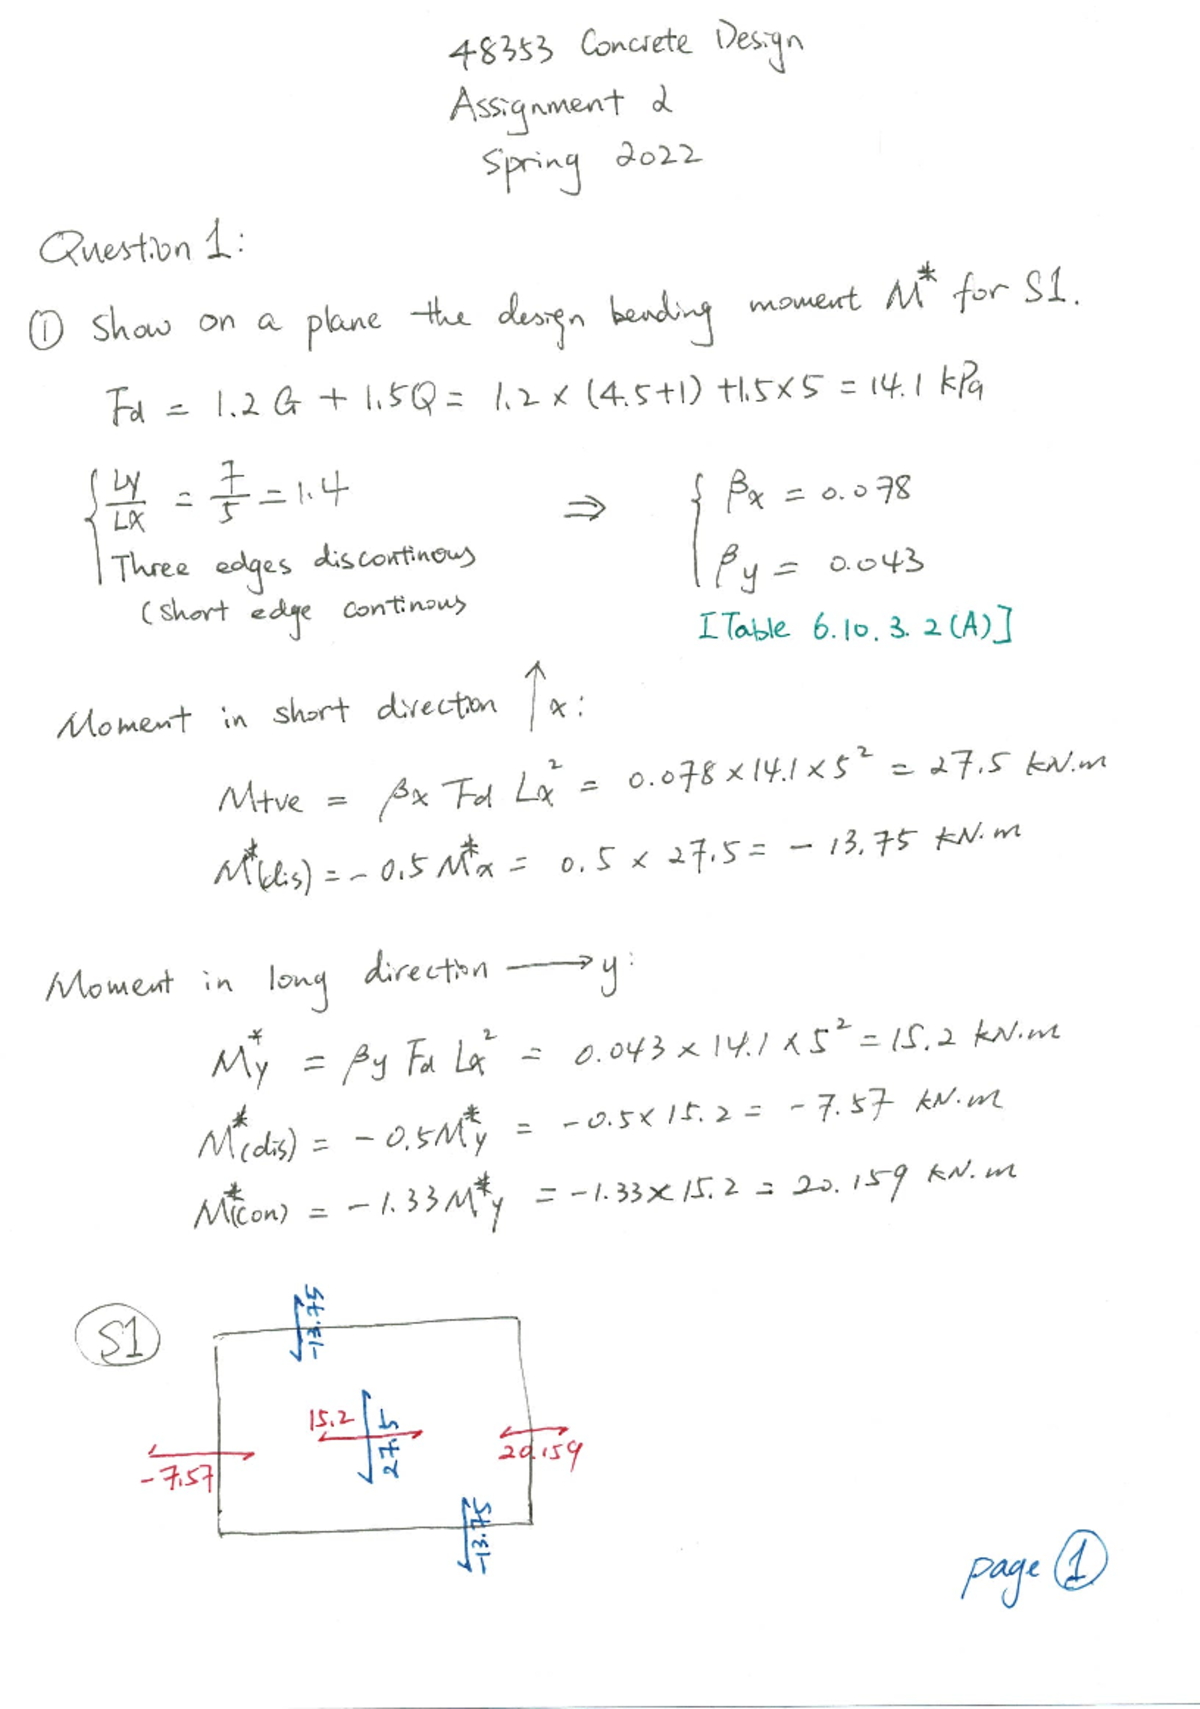 48353 Concrete Design
Assignment 2
Spring 2022
Question 1:
① Show on a plane the design bending moment M* for S1.
Fd = 1.2 G + 1.5Q = 1.2 × (4.5+1) +1.5×5 = 14.1 kPa
Ly/Lx = 7/5 = 1.4 ⇒ βx = 0.078
Three edges discontinous βy = 0.043
(short edge continous
[Table 6.10.3.2(A)]
Moment in short direction ↑x:
M+ve = βx Fd Lx² = 0.078 × 14.1 × 5² = 27.5 kN.m
M*(dis) = - 0.5 M*x = 0.5 × 27.5 = - 13.75 kN.m
Moment in long direction → y:
M*y = βy Fd Lx² = 0.043 × 14.1 × 5² = 15.2 kN.m
M*(dis) = - 0.5M*y = -0.5× 15.2 = - 7.57 kN.m
M*(con) = - 1.33M*y = -1.33× 15.2 = 20.159 kN.m
S1
-13.75
15.2
27.5
20.159
-7.57
-13.75
page ①